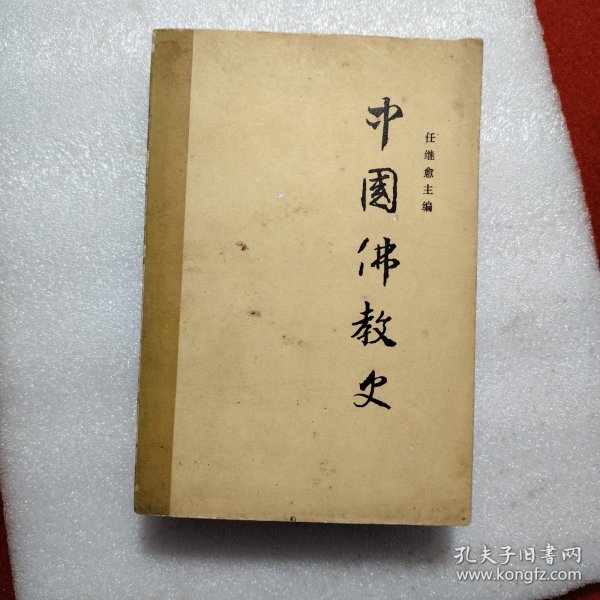 任继愈主编
中國佛教史
孔夫子旧書网
www.kongfz.com